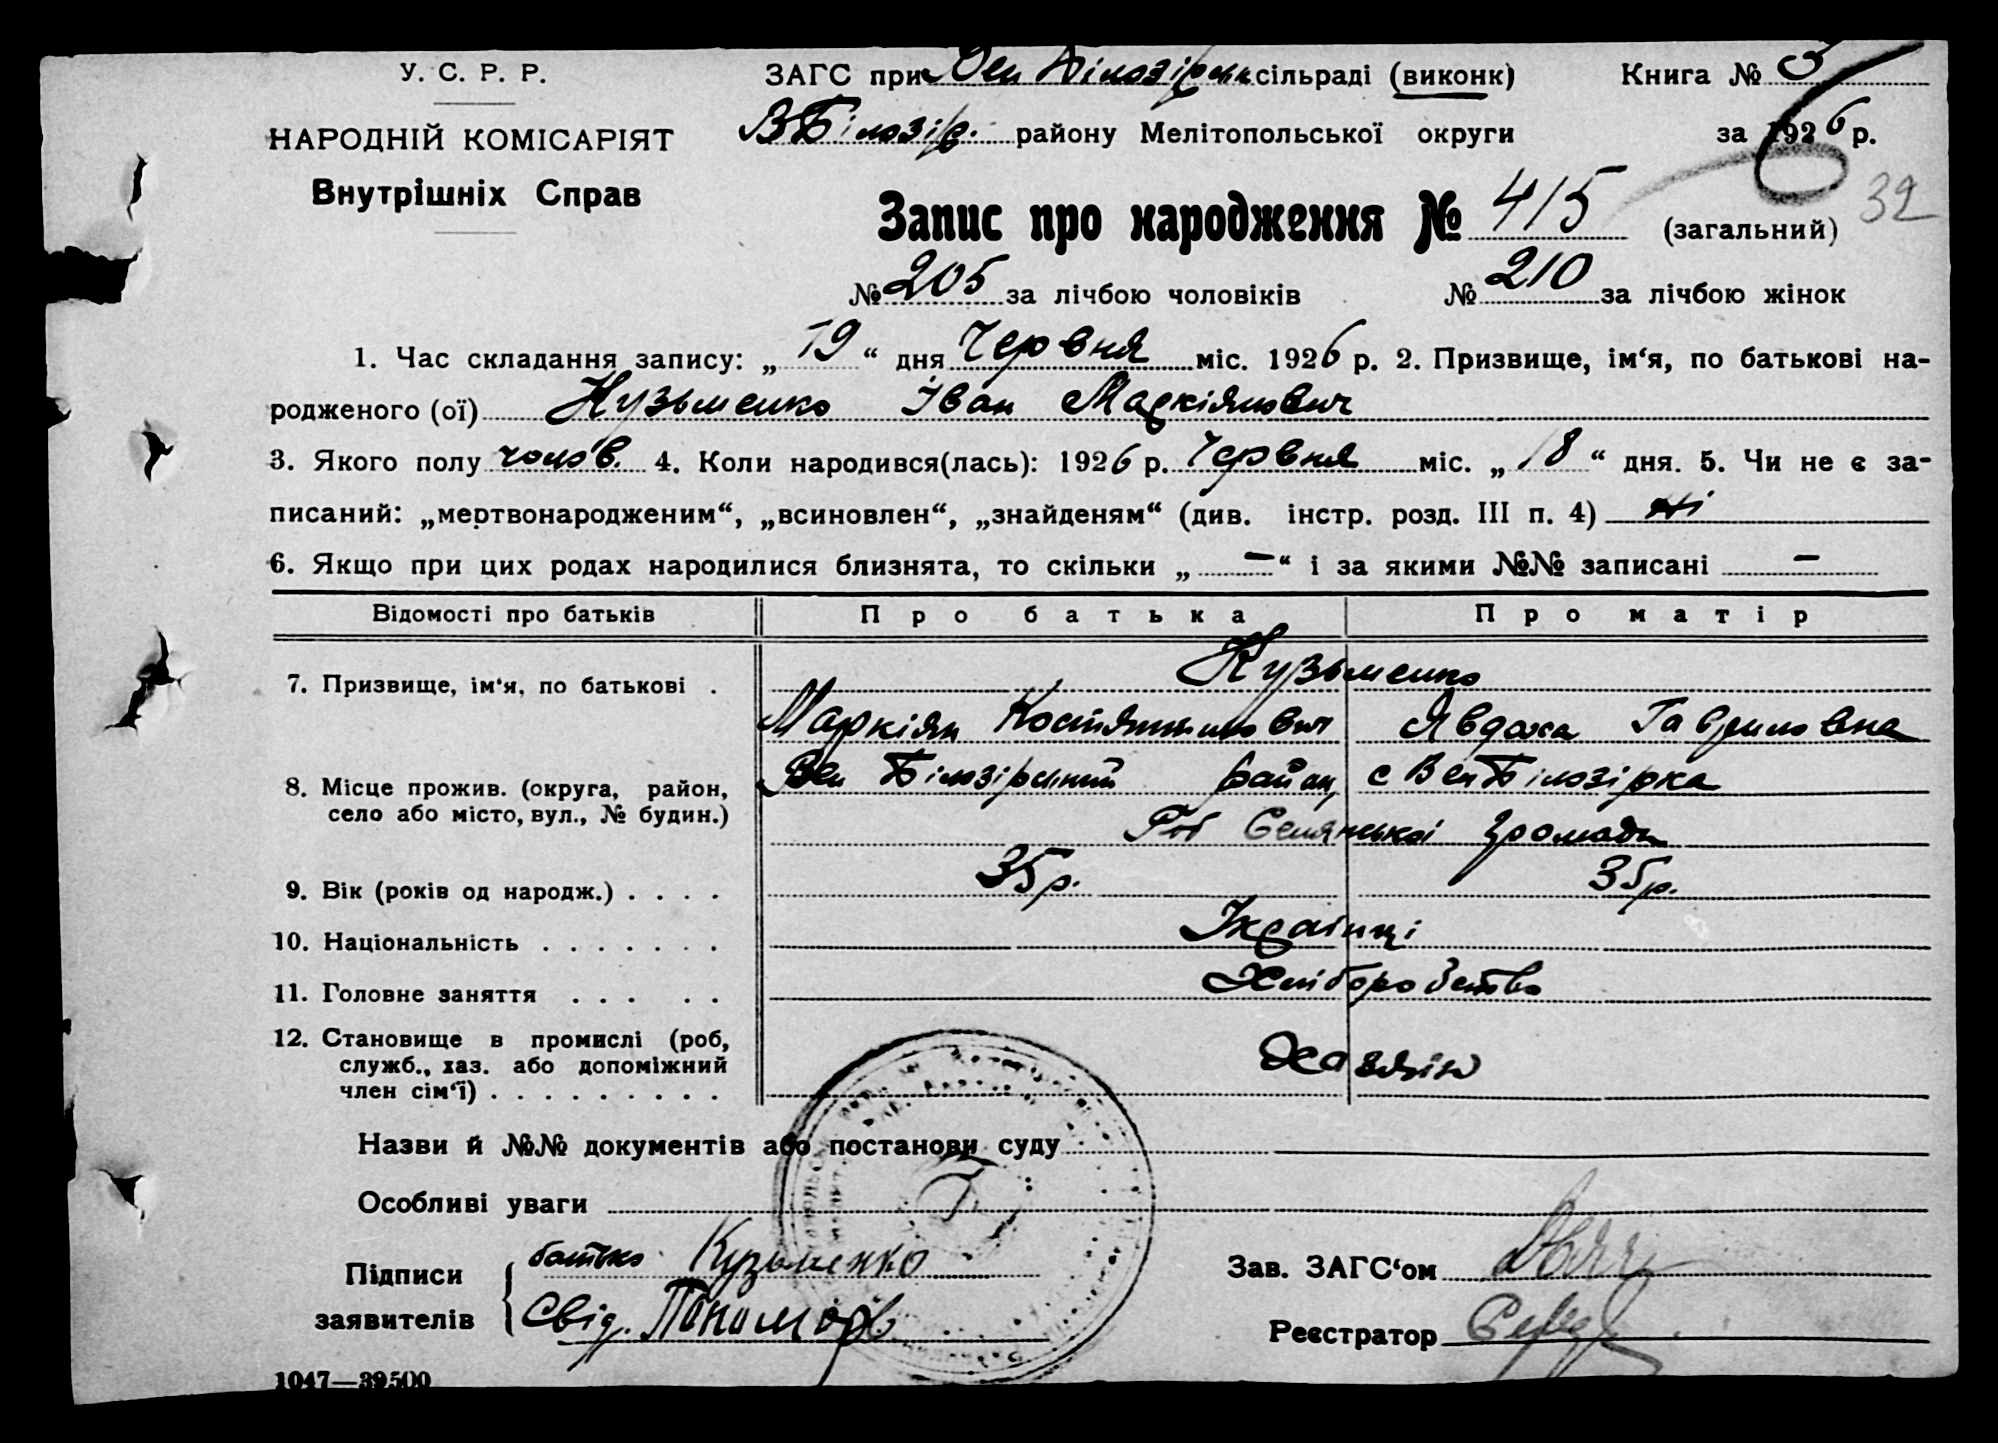 У. С. Р. Р.
НАРОДНІЙ КОМІСАРІЯТ
Внутрішніх Справ
ЗАГС при Вел Білозірськ сільраді (виконк) Книга № 5
ВБілозір. району Мелітопольської округи за 1926 р.
32
Запис про народження № 415 (загальний)
№ 205 за лічбою чоловіків № 210 за лічбою жінок
1. Час складання запису: „19“ дня Червня міс. 1926 р. 2. Призвище, ім‘я, по батькові на-
родженого (ої) Кузьменко Іван Маркіянович
3. Якого полу чолов. 4. Коли народився(лась): 1926 р. Червня міс. „18“ дня. 5. Чи не є за-
писаний: „мертвонародженим“, „всиновлен“, „знайденям“ (див. інстр. розд. III п. 4) ні
6. Якщо при цих родах народилися близнята, то скільки „–“ і за якими №№ записані –
Відомості про батьків Про батька Про матір
7. Призвище, ім‘я, по батькові . Кузьменко
Маркіян Костянтинович Явдоха Гавриловна
8. Місце прожив. (округа, район, село або місто, вул., № будин.) Вел Білозірський район, с Вел Білозірка
Селянської громади
9. Вік (років од народж.) . . . . 35р. 35р.
10. Національність . . . . . . . Українці
11. Головне заняття . . . . . Хліборобство
12. Становище в промислі (роб,
служб., хаз. або допоміжний
член сім‘ї) . . . . . . . . . Хазяін
Назви й №№ документів або постанови суду
Особливі уваги
Підписи заявителів
батько Кузьменко
Свід. Пономарів
Зав. ЗАГС‘ом
Реєстратор
1047—39500